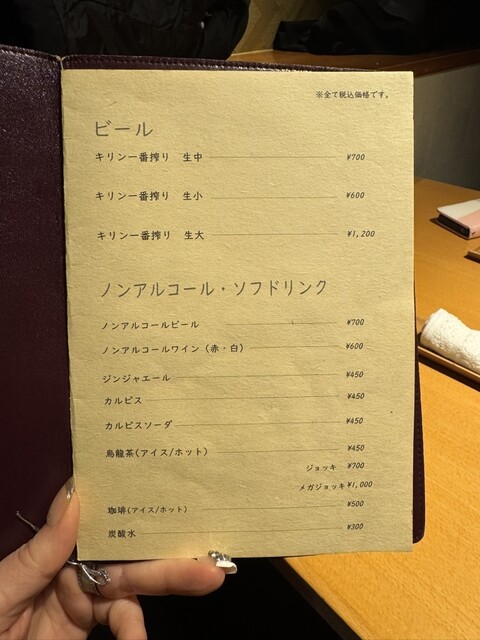 ※全て税込価格です。
ビール
キリン一番搾り 生中 ¥700
キリン一番搾り 生小 ¥600
キリン一番搾り 生大 ¥1,200
ノンアルコール・ソフドリンク
ノンアルコールビール ¥700
ノンアルコールワイン (赤・白) ¥600
ジンジャエール ¥450
カルピス ¥450
カルピスソーダ ¥450
烏龍茶(アイス/ホット) ¥450
ジョッキ ¥700
メガジョッキ ¥1,000
珈琲(アイス/ホット) ¥500
炭酸水 ¥300